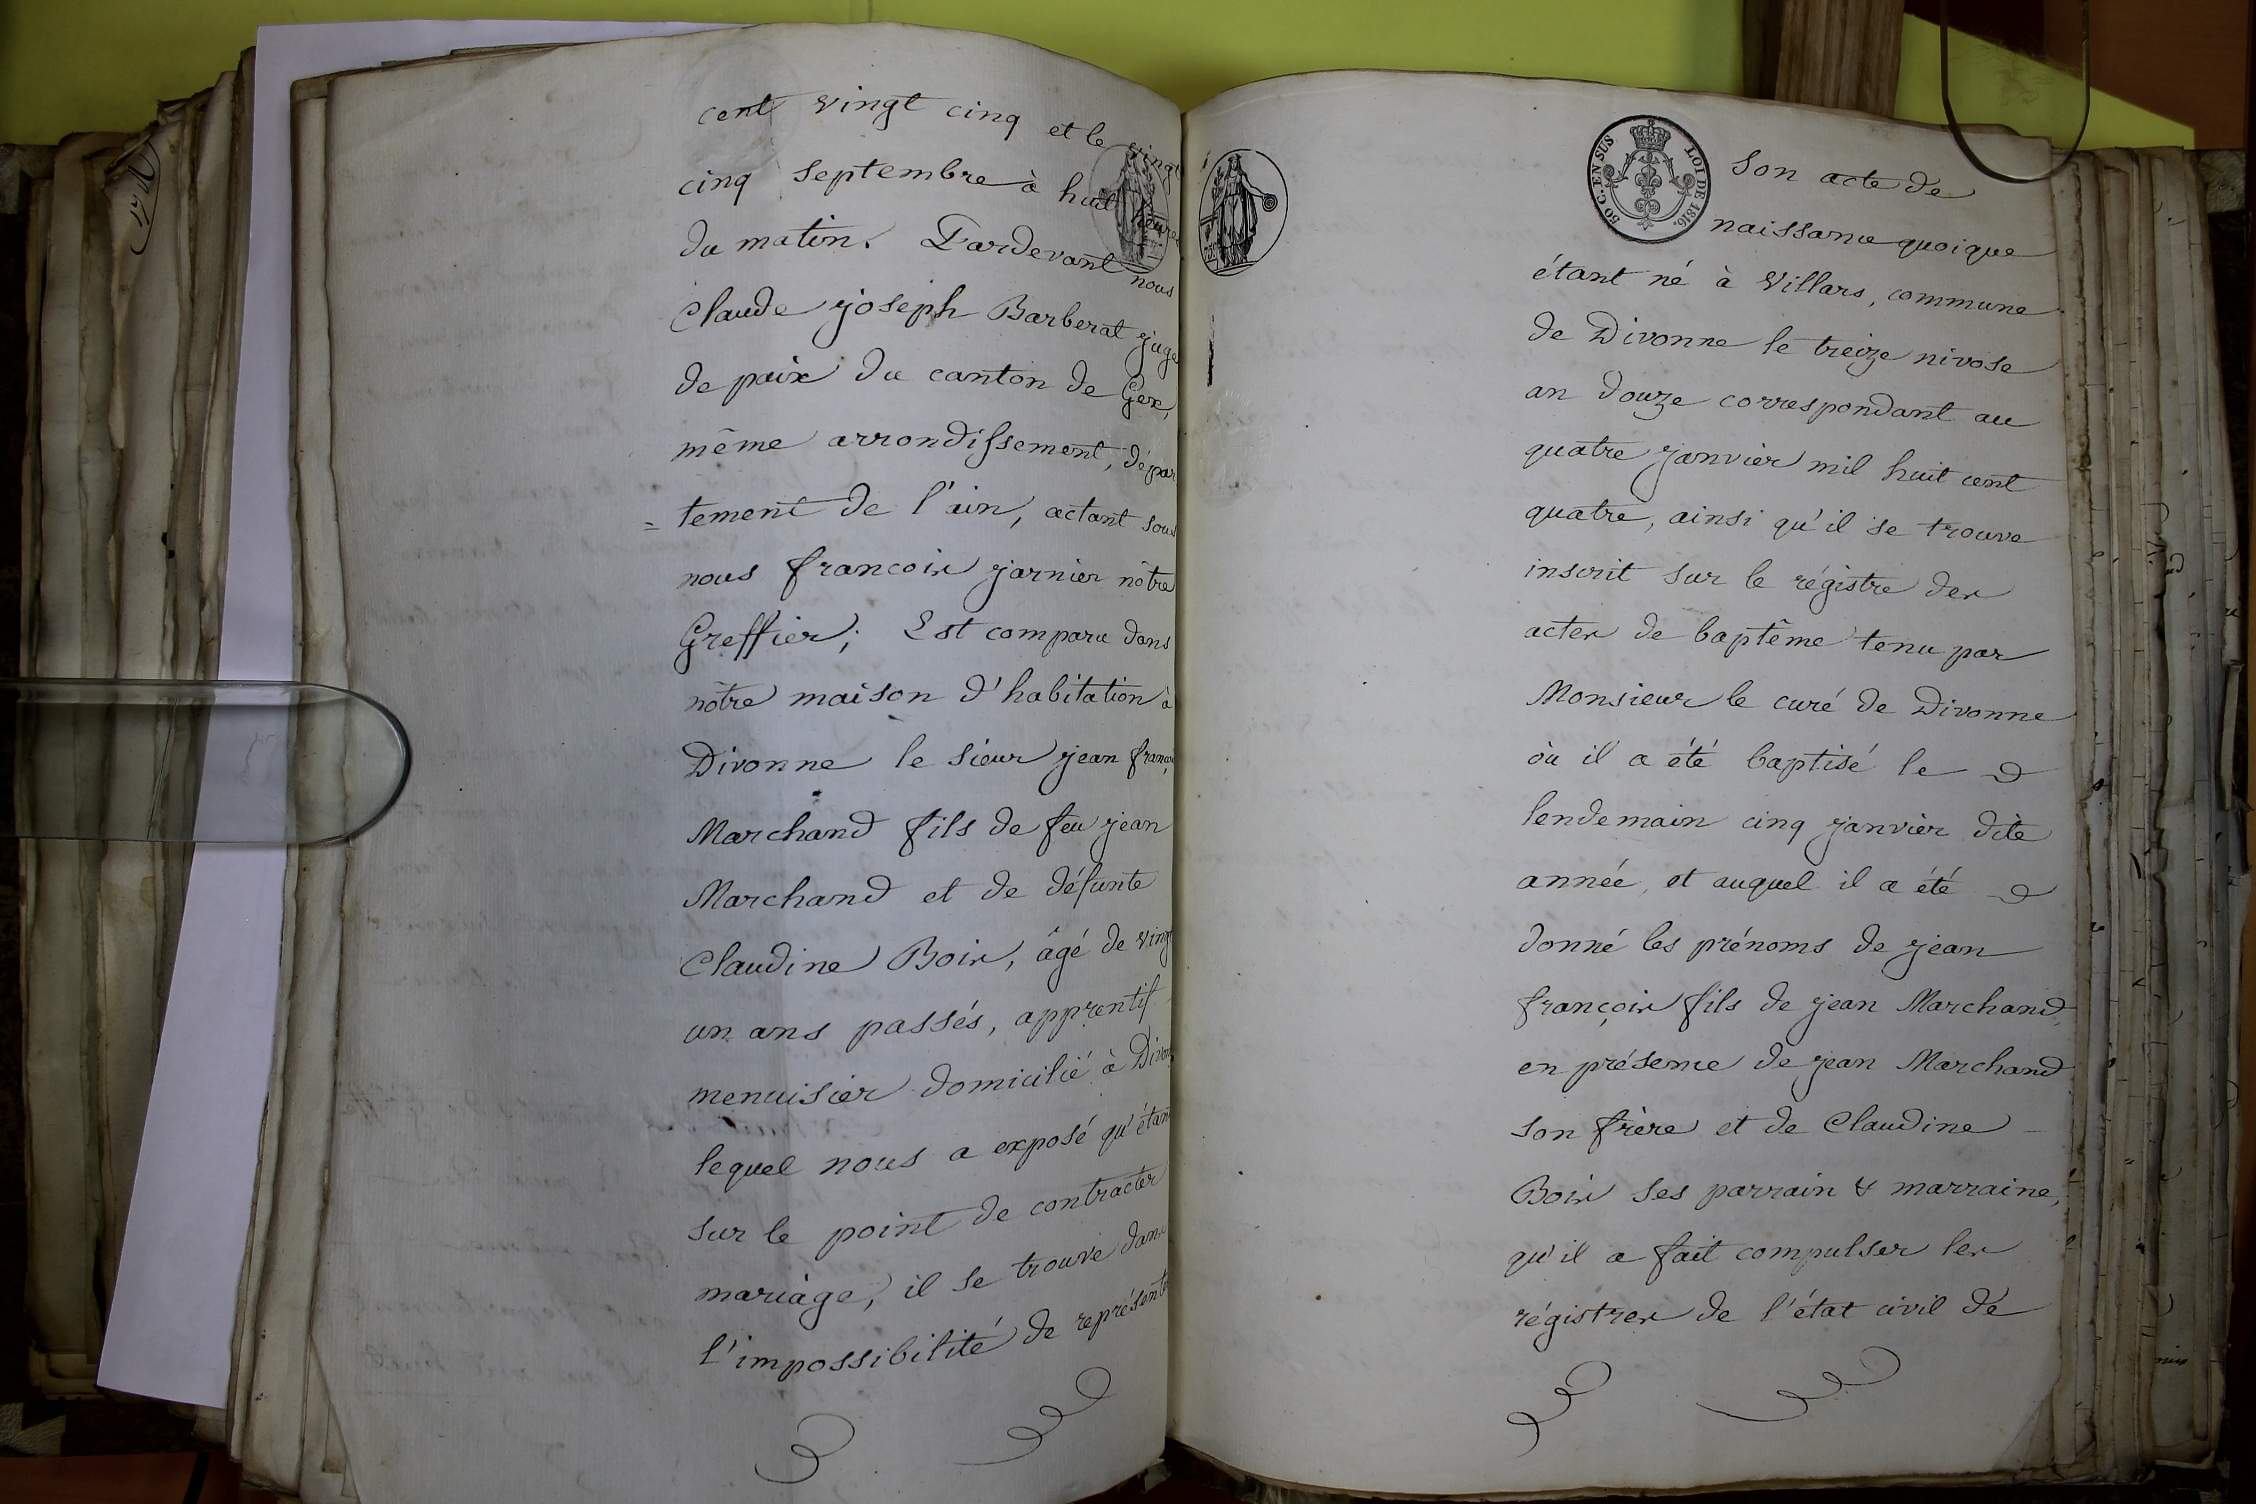 cent vingt cinq et le vingt
cinq septembre à huit heures
du matin. Pardevant nous
Claude joseph Barberat juge
de paix du canton de Gex,
même arrondissement, dépar
= tement de l'ain, actant sous
nous francois jarnier nôtre
Greffier; Est comparu dans
nôtre maison d'habitation à
Divonne le sieur jean françois
Marchand fils de feu jean
Marchand et de défunte
Claudine Bois, âgé de vingt
un ans passés, apprentif
menuisier domicilié à Divonne
lequel nous a exposé qu'étant
sur le point de contracter
mariage, il se trouve dans
l'impossibilité de représenter
50 C. EN SUS
LOI DE 1816.
son acte de
naissance quoique
étant né à Villars, commune
de Divonne le treize nivose
an douze correspondant au
quatre janvier mil huit cent
quatre, ainsi qu'il se trouve
inscrit sur le régistre des
actes de baptême tenu par
Monsieur le curé de Divonne
où il a été baptisé le
lendemain cinq janvier dite
année, et auquel il a été
donné les prénoms de jean
françois fils de jean Marchand,
en présence de jean Marchand
son frère et de Claudine
Bois ses parrain & marraine,
qu'il a fait compulser les
régistres de l'état civil de